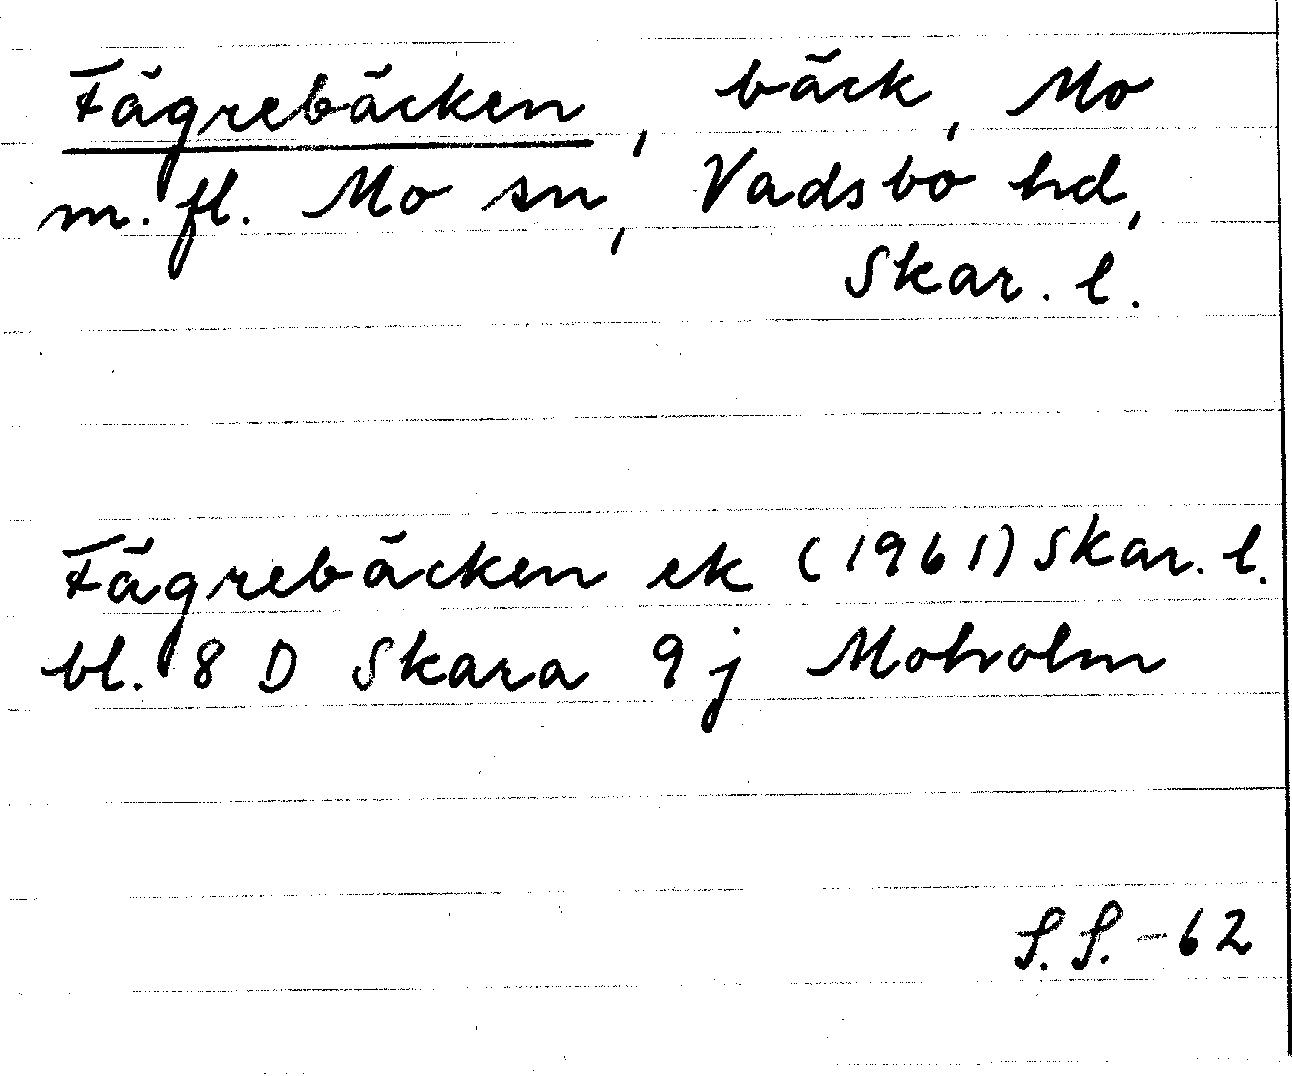 Fägrebäcken, bäck, Mo
m. fl. Mo sn, Vadsbo hd,
Skar. l.
Fägrebäcken ek (1961) Skar. l.
bl. 8 D Skara 9 j Moholm
S. S. -62